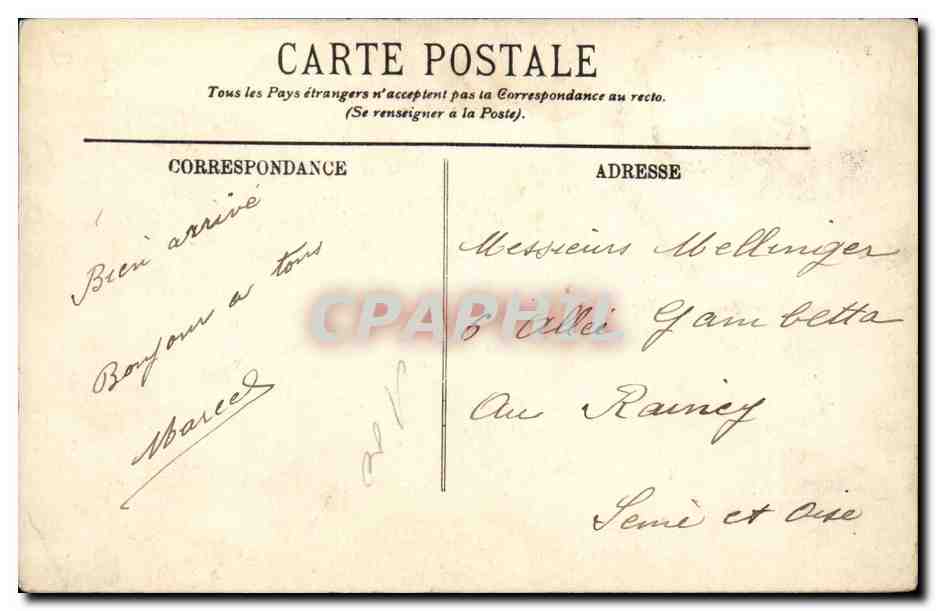 CARTE POSTALE
Tous les Pays étrangers n'acceptent pas la Correspondance au recto.
(Se renseigner à la Poste).
CORRESPONDANCE
Bien arrivé
Bonjour a tous
Marcel
ADRESSE
Messieurs Mellinger
6 Allée Gambetta
Au Raincy
Seine et Oise
CPAPHIL